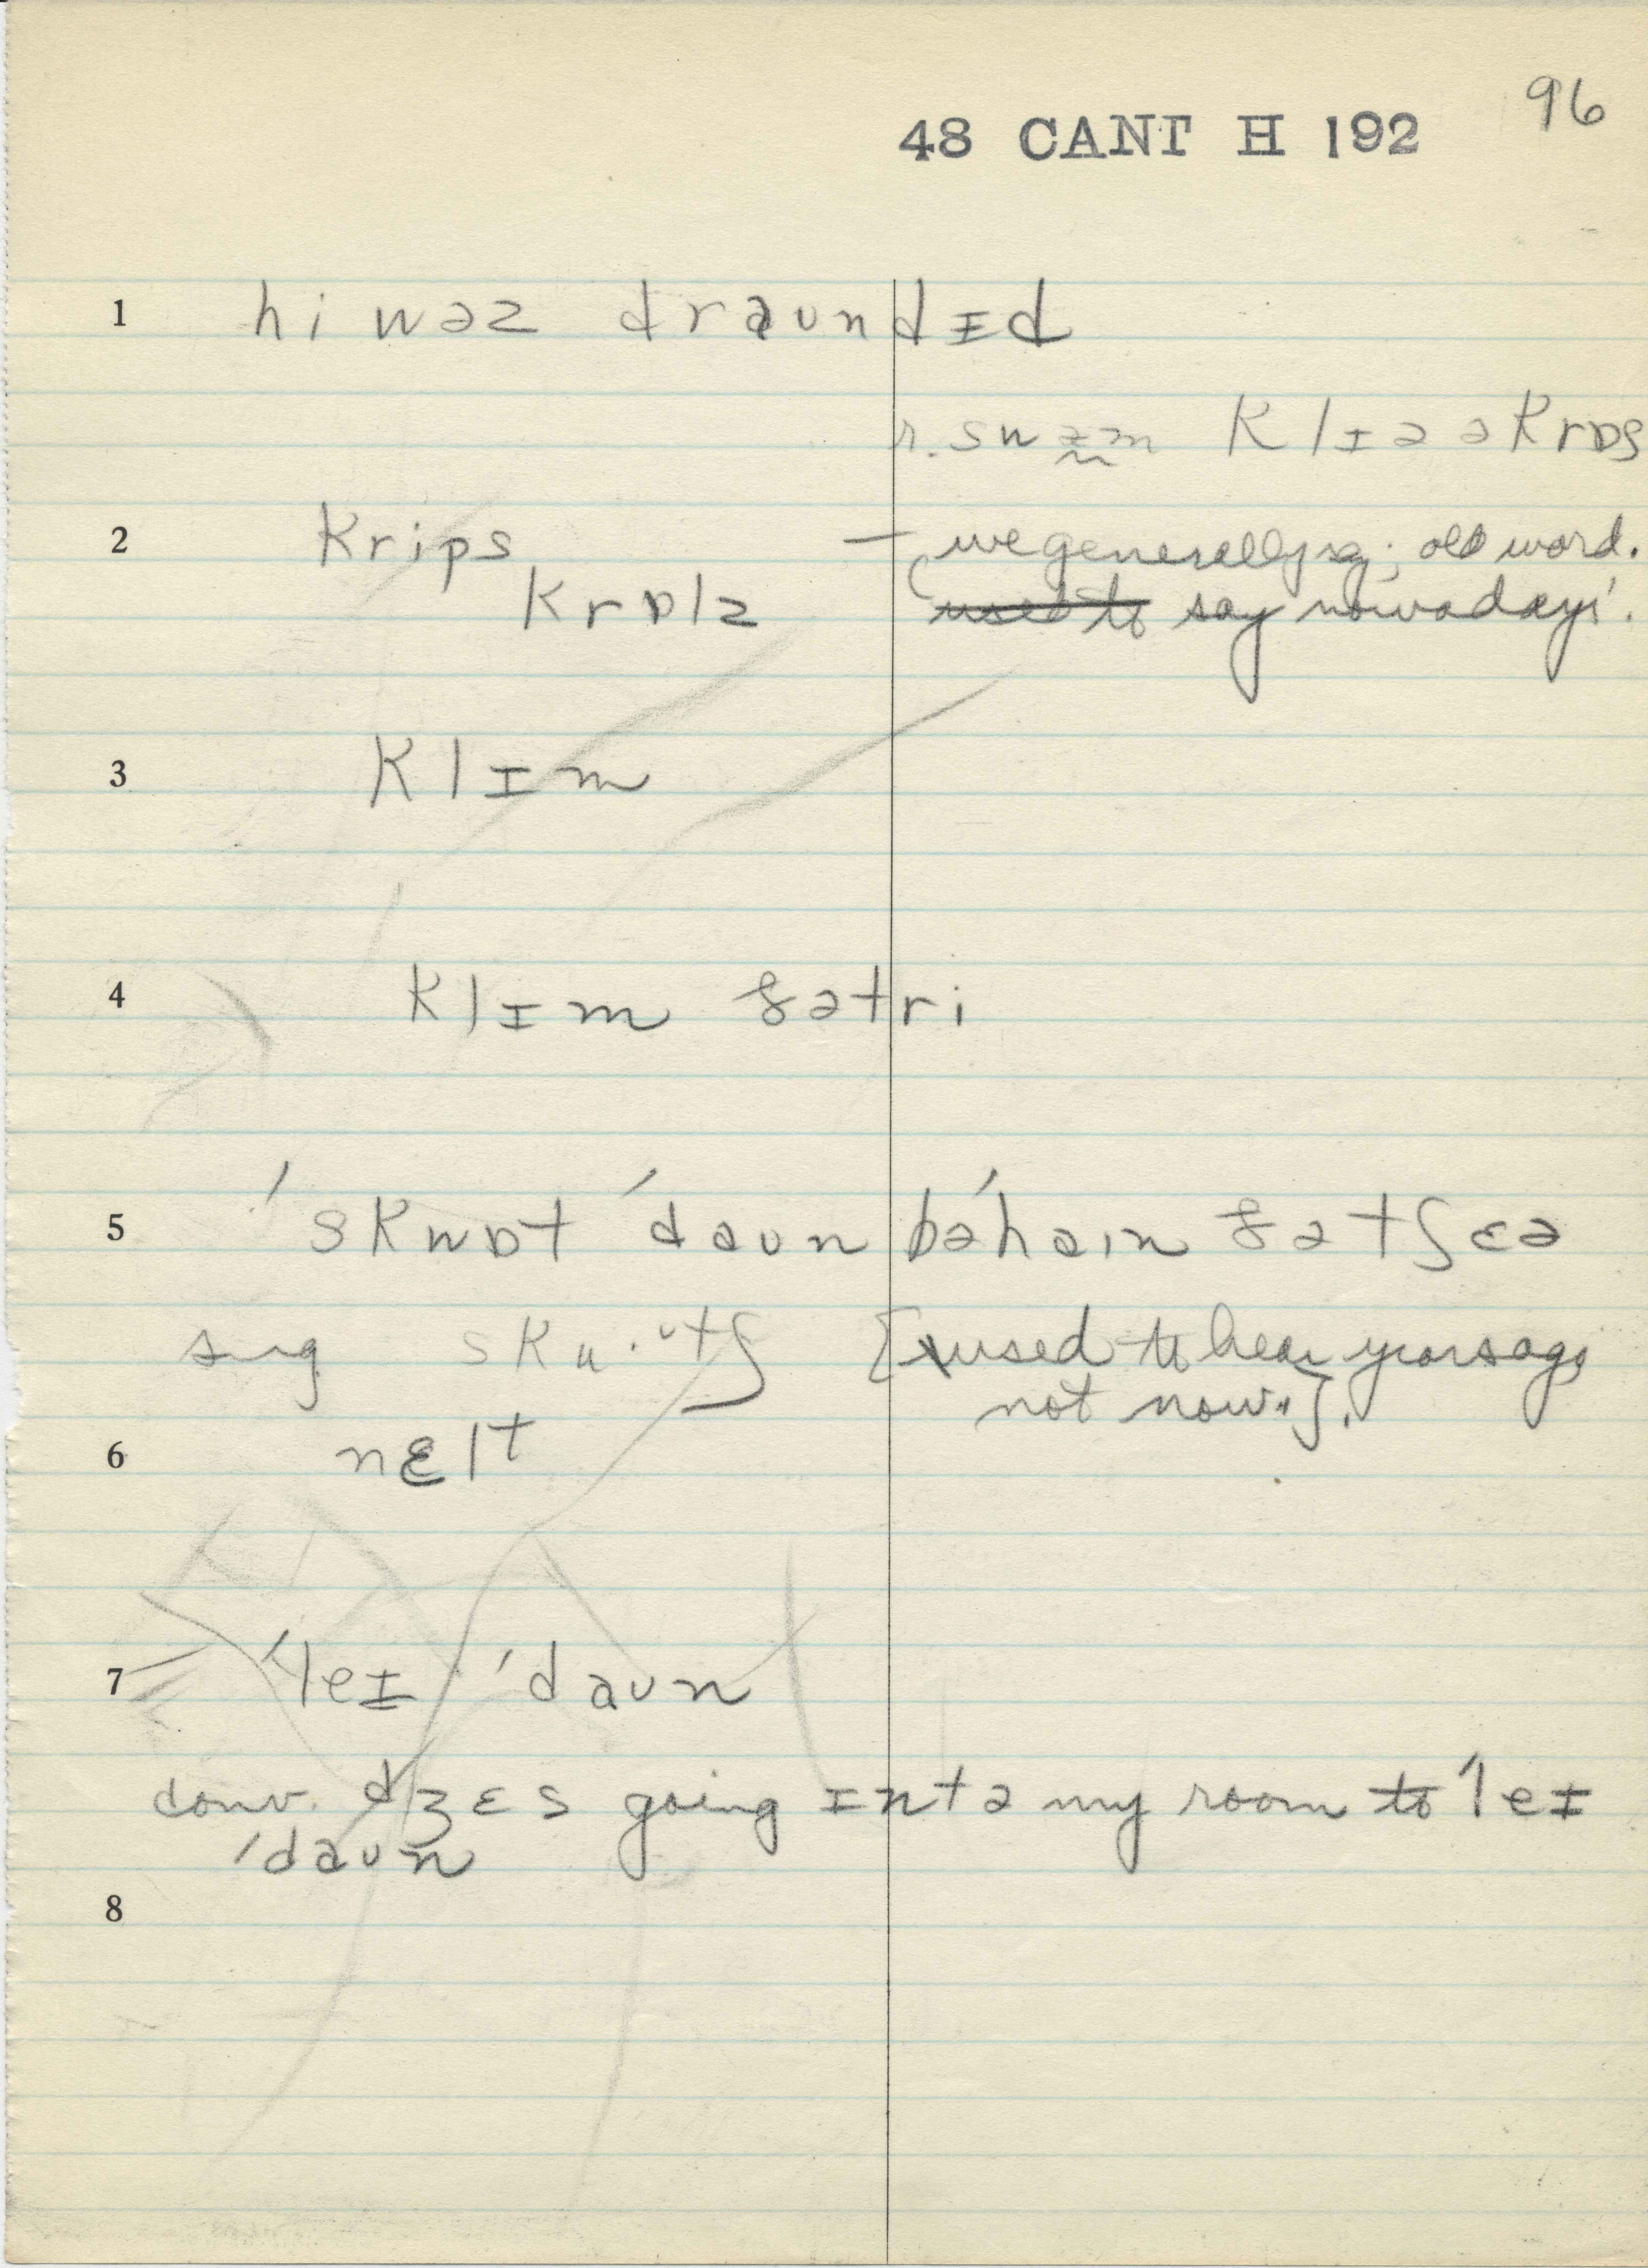 96
48 CANT H 192
1 hi wəz draʊndɪd
r. swɪm klɪə əkrɒs
2 krips — we generally say; old word.
krɒlz (used to say nowadays'.
3 klɪm
4 klɪm ðə tri
5 'skwɒt 'daʊn bə'haɪn ðə tʃɛə
sug [used to hear years ago
not now"].
6 nɛlt
7 'leɪ 'daʊn
conv. dʒɛs going ɪntə my room to 'leɪ
'daʊn
8